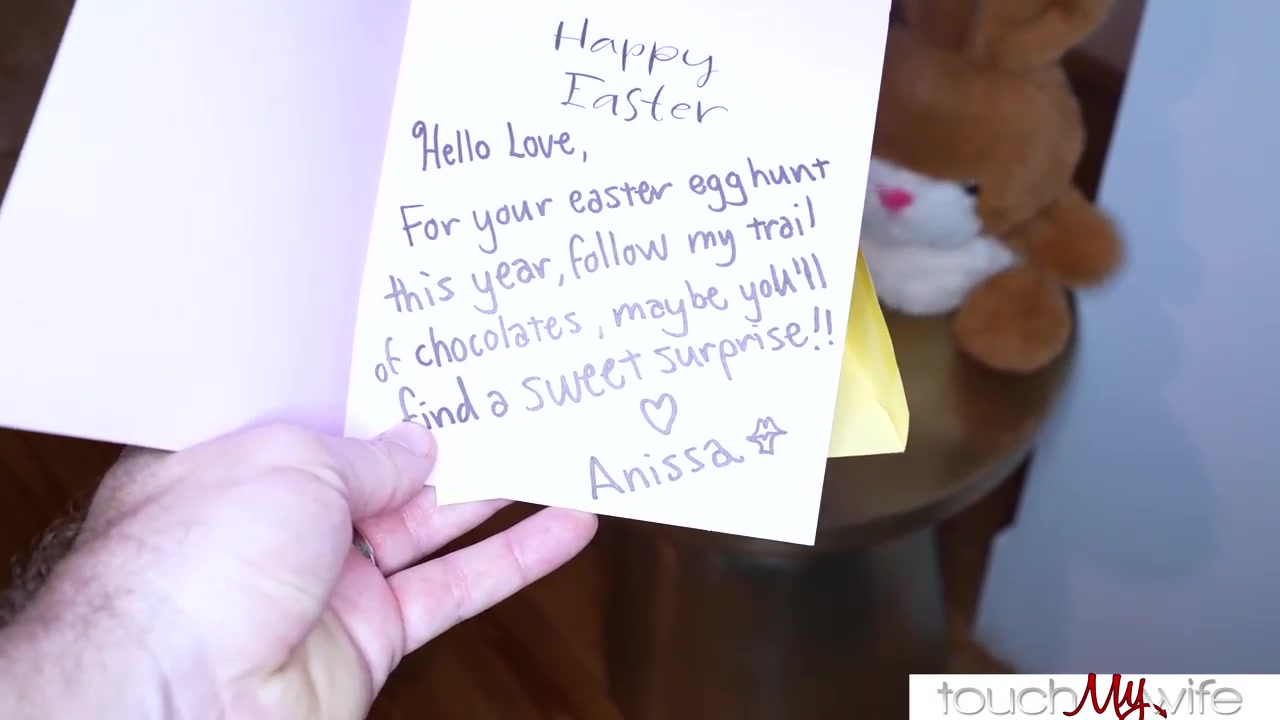 Happy
Easter
Hello Love,
For your easter egg hunt
this year, follow my trail
of chocolates, maybe you'll
find a sweet surprise!!
Anissa
touchMywife